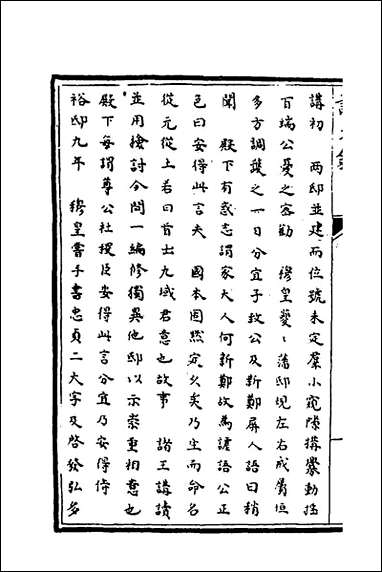 講初　兩邸並建而位號未定羣小窺隙搆釁動搖
百端公憂之密勸　穆皇夔夔藩邸規左右戒屬垣
多方調護之一日分宜子敖公及新鄭屏人語曰稍
聞　殿下有惑志謂家大人何新鄭故為謔語公正
色曰安得此言夫　國本固默定久矣乃生而命名
從元從土若曰首出九域君意也故事　諸王講讀
並用檢討今問一編修獨異他邸以示崇重相意也
殿下每謂尊公社稷臣安得此言分宜乃安得侍
裕邸九年　穆皇嘗手書忠貞二大字及啓發弘多